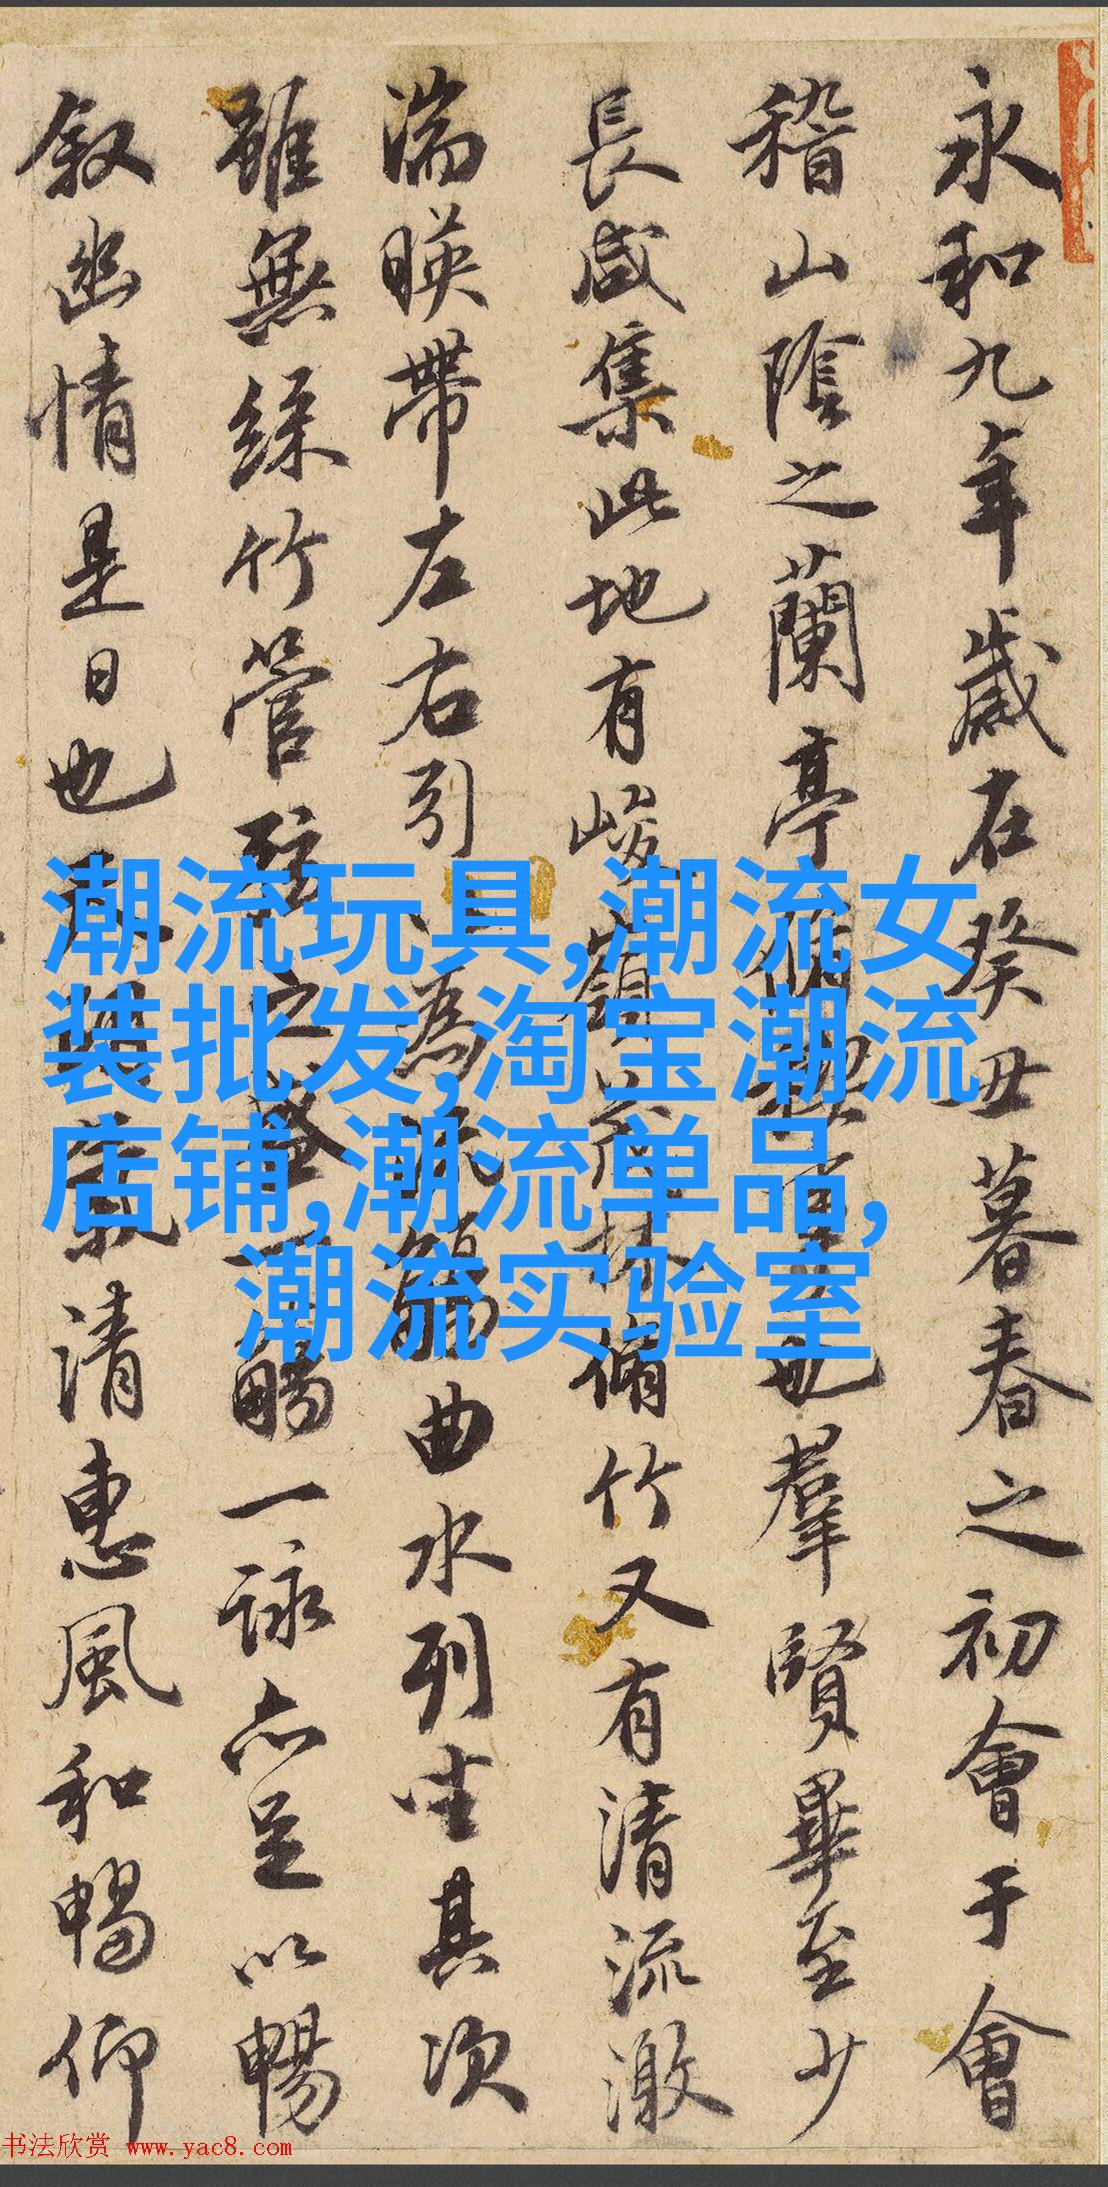 永和九年歲在癸丑暮春之初會于會
稽山陰之蘭亭脩禊事也羣賢畢至少
長咸集此地有峻嶺茂林脩竹又有清流激
湍暎帶左右引以為流觴曲水列坐其次
雖無絲竹管弦之盛一觴一詠亦足以暢
叙幽情是日也天朗氣清惠風和暢仰
潮流玩具,潮流女
装批发,淘宝潮流
店铺,潮流单品,
潮流实验室
书法欣赏 www.yac8.com